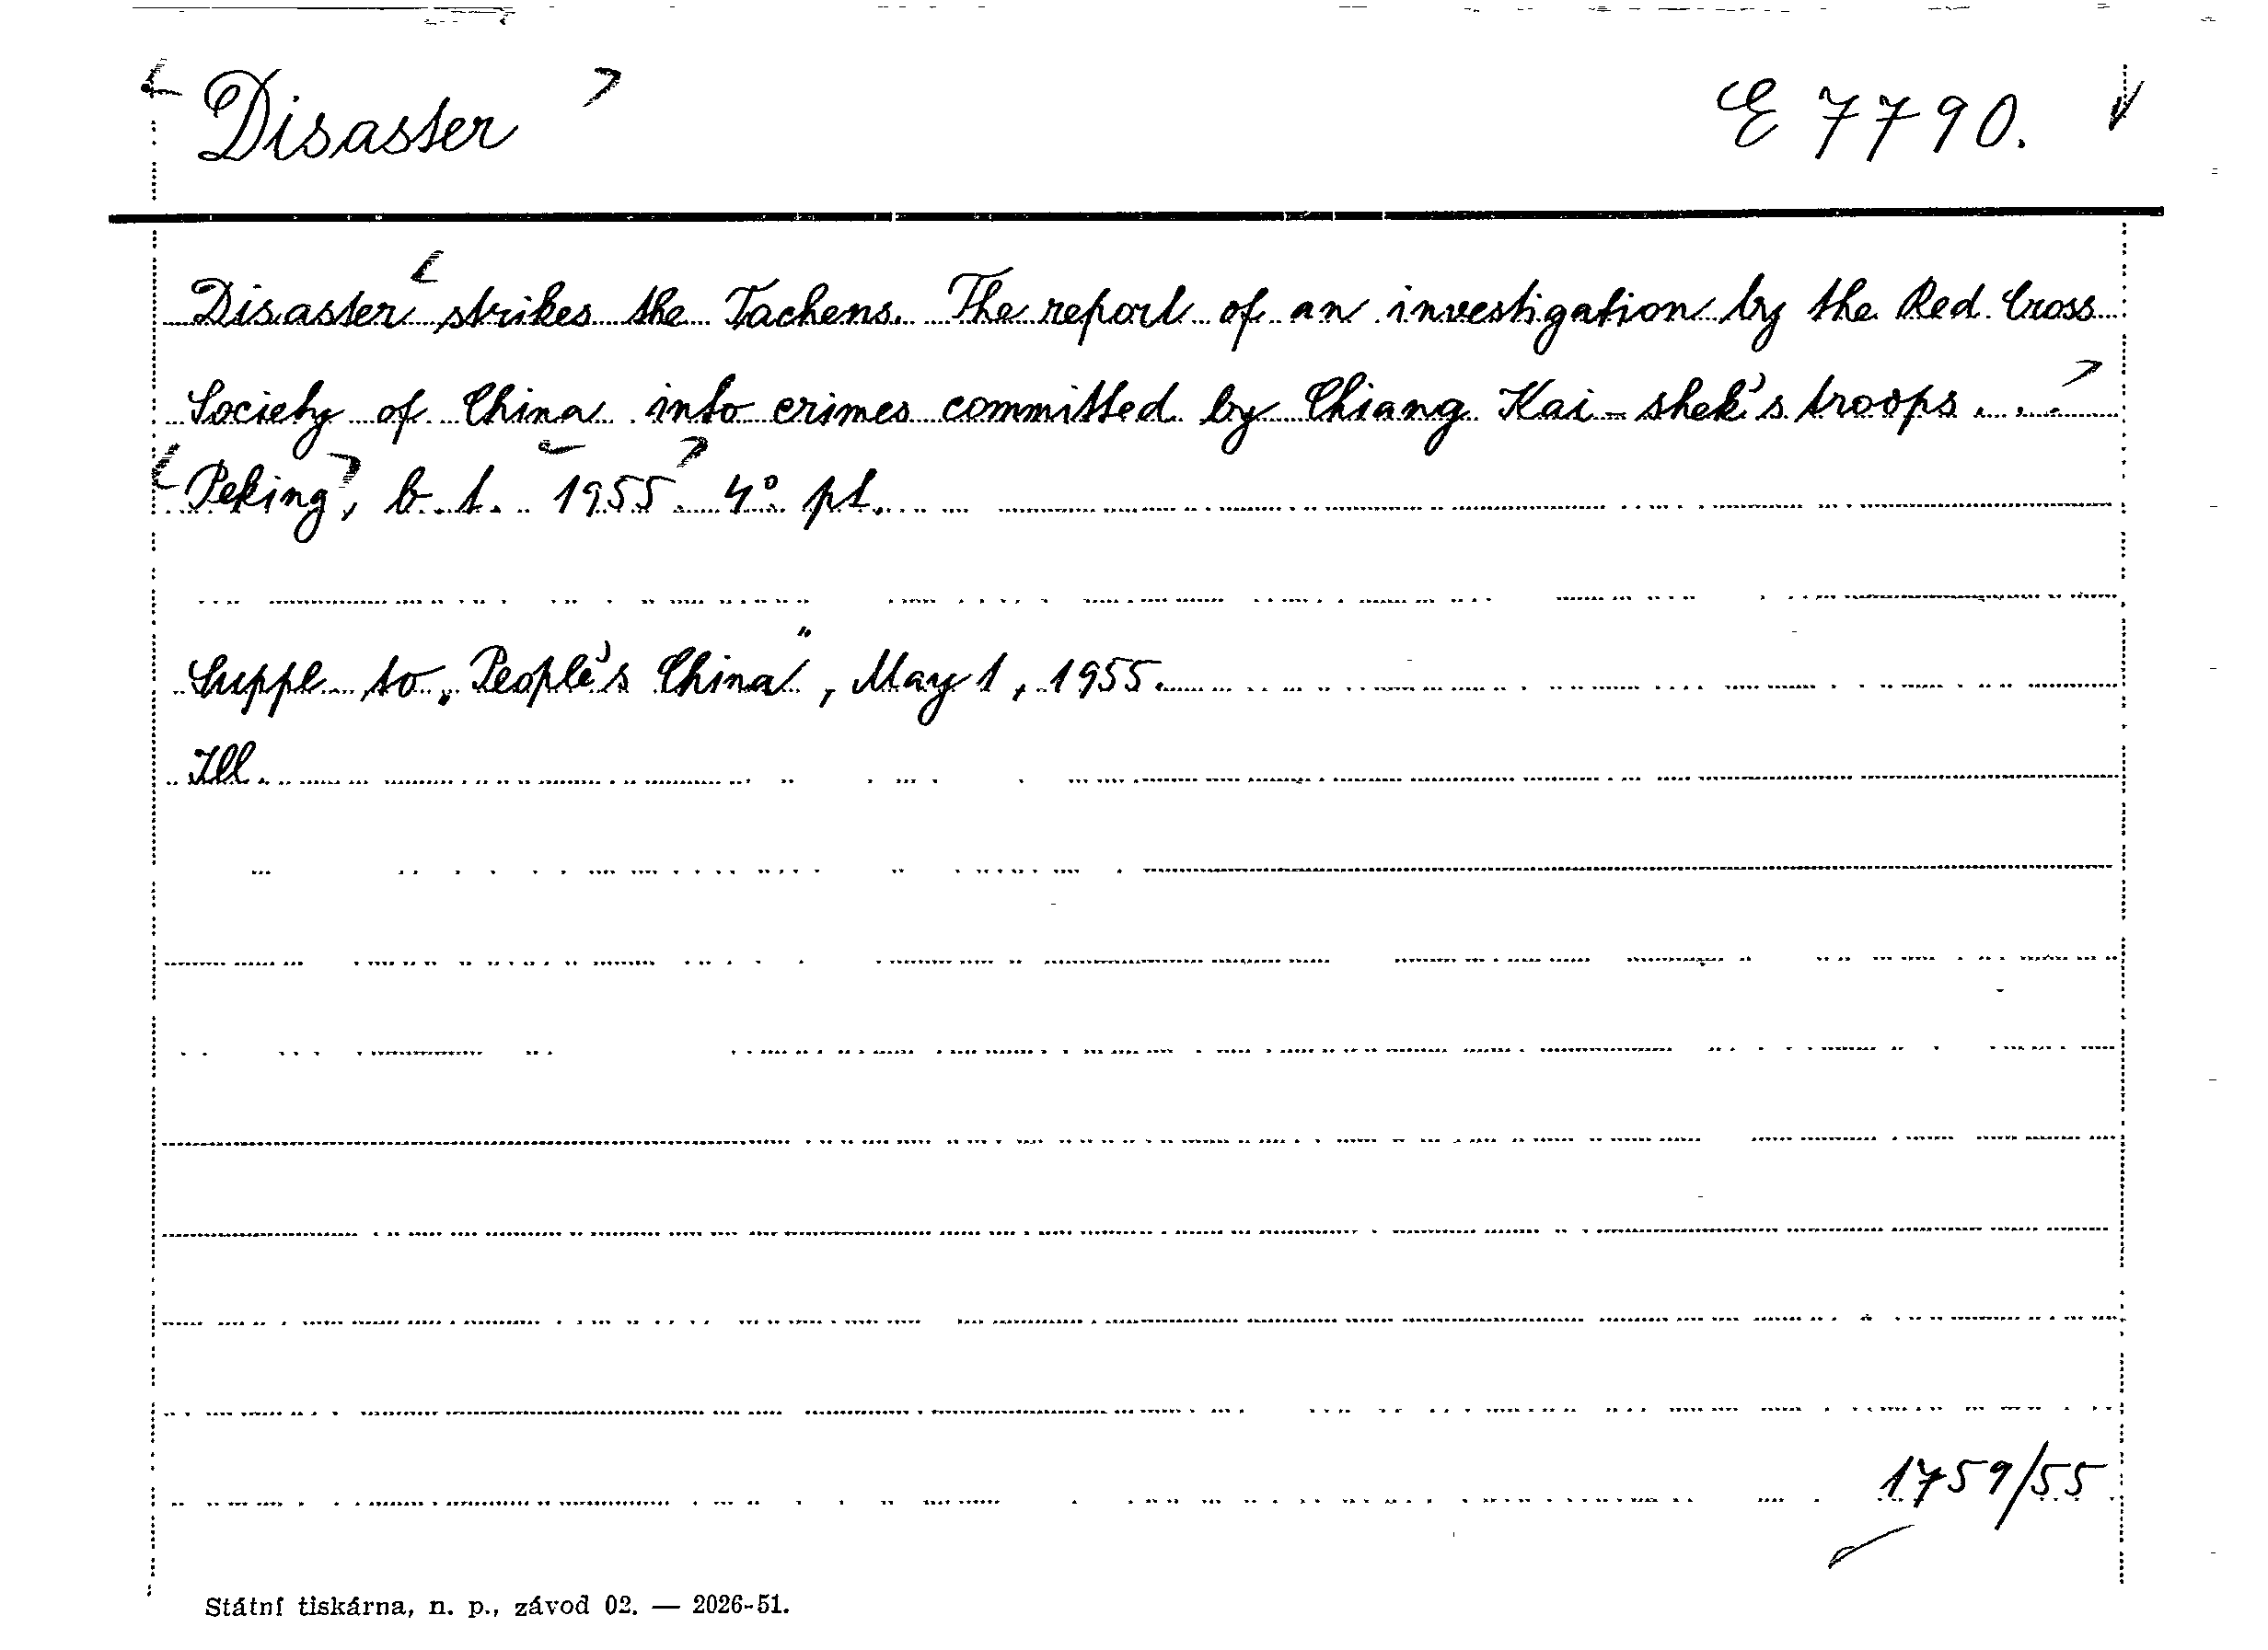 Disaster
E 7790.
Disaster strikes the Tachens. The report of an investigation by the Red Cross
Society of China into crimes committed by Chiang Kai-shek's troops...
Peking, b. t. 1955. 4° pt.
Suppl. to „People's China“, May 1, 1955.
Ill.
1759/55
Státní tiskárna, n. p., závod 02. — 2026-51.